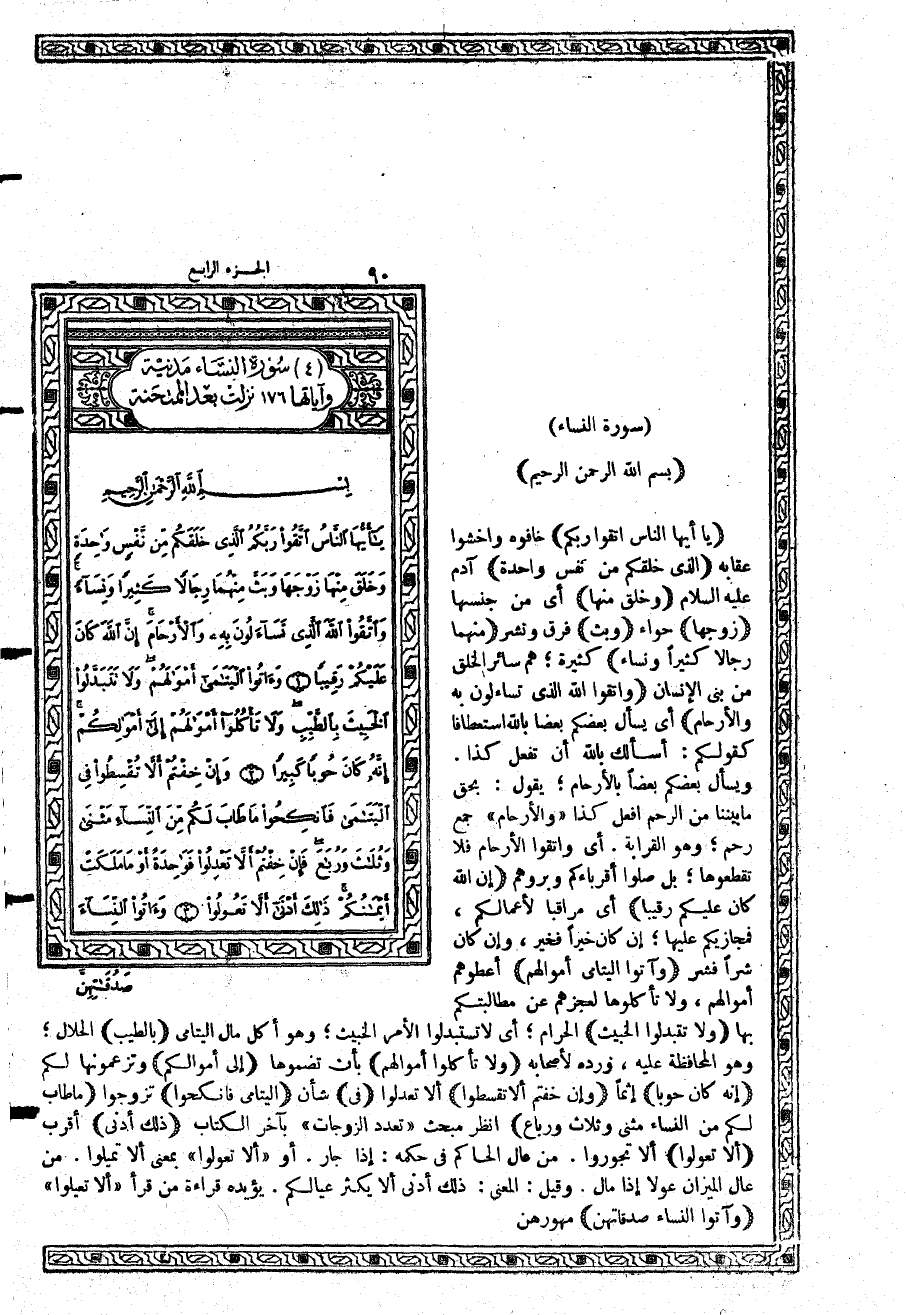 الجـزء الرابع
٩٠
(٤) سُورَة النِّسَاء مَدنيَّة
وآياتها ١٧٦ نزلت بعد الممتحنة
بِسْمِ ٱللَّهِ ٱلرَّحْمَٰنِ ٱلرَّحِيمِ
يَٰٓأَيُّهَا ٱلنَّاسُ ٱتَّقُوا۟ رَبَّكُمُ ٱلَّذِى خَلَقَكُم مِّن نَّفْسٍ وَٰحِدَةٍ
وَخَلَقَ مِنْهَا زَوْجَهَا وَبَثَّ مِنْهُمَا رِجَالًا كَثِيرًا وَنِسَآءً ۚ
وَٱتَّقُوا۟ ٱللَّهَ ٱلَّذِى تَسَآءَلُونَ بِهِۦ وَٱلْأَرْحَامَ ۚ إِنَّ ٱللَّهَ كَانَ
عَلَيْكُمْ رَقِيبًا ۝١ وَءَاتُوا۟ ٱلْيَتَٰمَىٰٓ أَمْوَٰلَهُمْ ۖ وَلَا تَتَبَدَّلُوا۟
ٱلْخَبِيثَ بِٱلطَّيِّبِ ۖ وَلَا تَأْكُلُوٓا۟ أَمْوَٰلَهُمْ إِلَىٰٓ أَمْوَٰلِكُمْ ۚ
إِنَّهُۥ كَانَ حُوبًا كَبِيرًا ۝٢ وَإِنْ خِفْتُمْ أَلَّا تُقْسِطُوا۟ فِى
ٱلْيَتَٰمَىٰ فَٱنكِحُوا۟ مَا طَابَ لَكُم مِّنَ ٱلنِّسَآءِ مَثْنَىٰ
وَثُلَٰثَ وَرُبَٰعَ ۖ فَإِنْ خِفْتُمْ أَلَّا تَعْدِلُوا۟ فَوَٰحِدَةً أَوْ مَا مَلَكَتْ
أَيْمَٰنُكُمْ ۚ ذَٰلِكَ أَدْنَىٰٓ أَلَّا تَعُولُوا۟ ۝٣ وَءَاتُوا۟ ٱلنِّسَآءَ
صَدُقَٰتِهِنَّ
(سورة النساء)
(بسم الله الرحمن الرحيم)
(يا أيها الناس اتقوا ربكم) خافوه واخشوا
عقابه (الذى خلقكم من نفس واحدة) آدم
عليه السلام (وخلق منها) أى من جنسها
(زوجها) حواء (وبث) فرق ونشر (منهما
رجالا كثيراً ونساء) كثيرة ؛ هم سائر الخلق
من بنى الإنسان (واتقوا الله الذى تساءلون به
والأرحام) أى يسأل بعضكم بعضا بالله استعطافا
كقولكم : أسألك بالله أن تفعل كذا .
ويسأل بعضكم بعضاً بالأرحام ؛ يقول : بحق
مابيننا من الرحم افعل كذا «والأرحام» جمع
رحم ؛ وهو القرابة . أى واتقوا الأرحام فلا
تقطعوها ؛ بل صلوا أقرباءكم وبروهم (إن الله
كان عليكم رقيبا) أى مراقبا لأعمالكم ،
فمجازيكم عليها ؛ إن كان خيراً فخير ، وإن كان
شراً فشر (وآتوا اليتامى أموالهم) أعطوهم
أموالهم ، ولا تأكلوها لعجزهم عن مطالبتكم
بها (ولا تتبدلوا الخبيث) الحرام ؛ أى لاتستبدلوا الأمر الخبيث ؛ وهو أكل مال اليتامى (بالطيب) الحلال ؛
وهو المحافظة عليه ، ورده لأصحابه (ولا تأكلوا أموالهم) بأن تضموها (إلى أموالكم) وتزعمونها لكم
(إنه كان حوبا) إثماً (وإن خفتم ألا تقسطوا) ألا تعدلوا (فى) شأن (اليتامى فانكحوا) تزوجوا (ماطاب
لكم من النساء مثنى وثلاث ورباع) انظر مبحث «تعدد الزوجات» بآخر الكتاب (ذلك أدنى) أقرب
(ألا تعولوا) ألا تجوروا . من عال الحاكم فى حكمه : إذا جار . أو «ألا تعولوا» بمعنى ألا تميلوا . من
عال الميزان عولا إذا مال . وقيل : المعنى : ذلك أدنى ألا يكثر عيالكم . يؤيده قراءة من قرأ «ألا تعيلوا»
(وآتوا النساء صدقاتهن) مهورهن